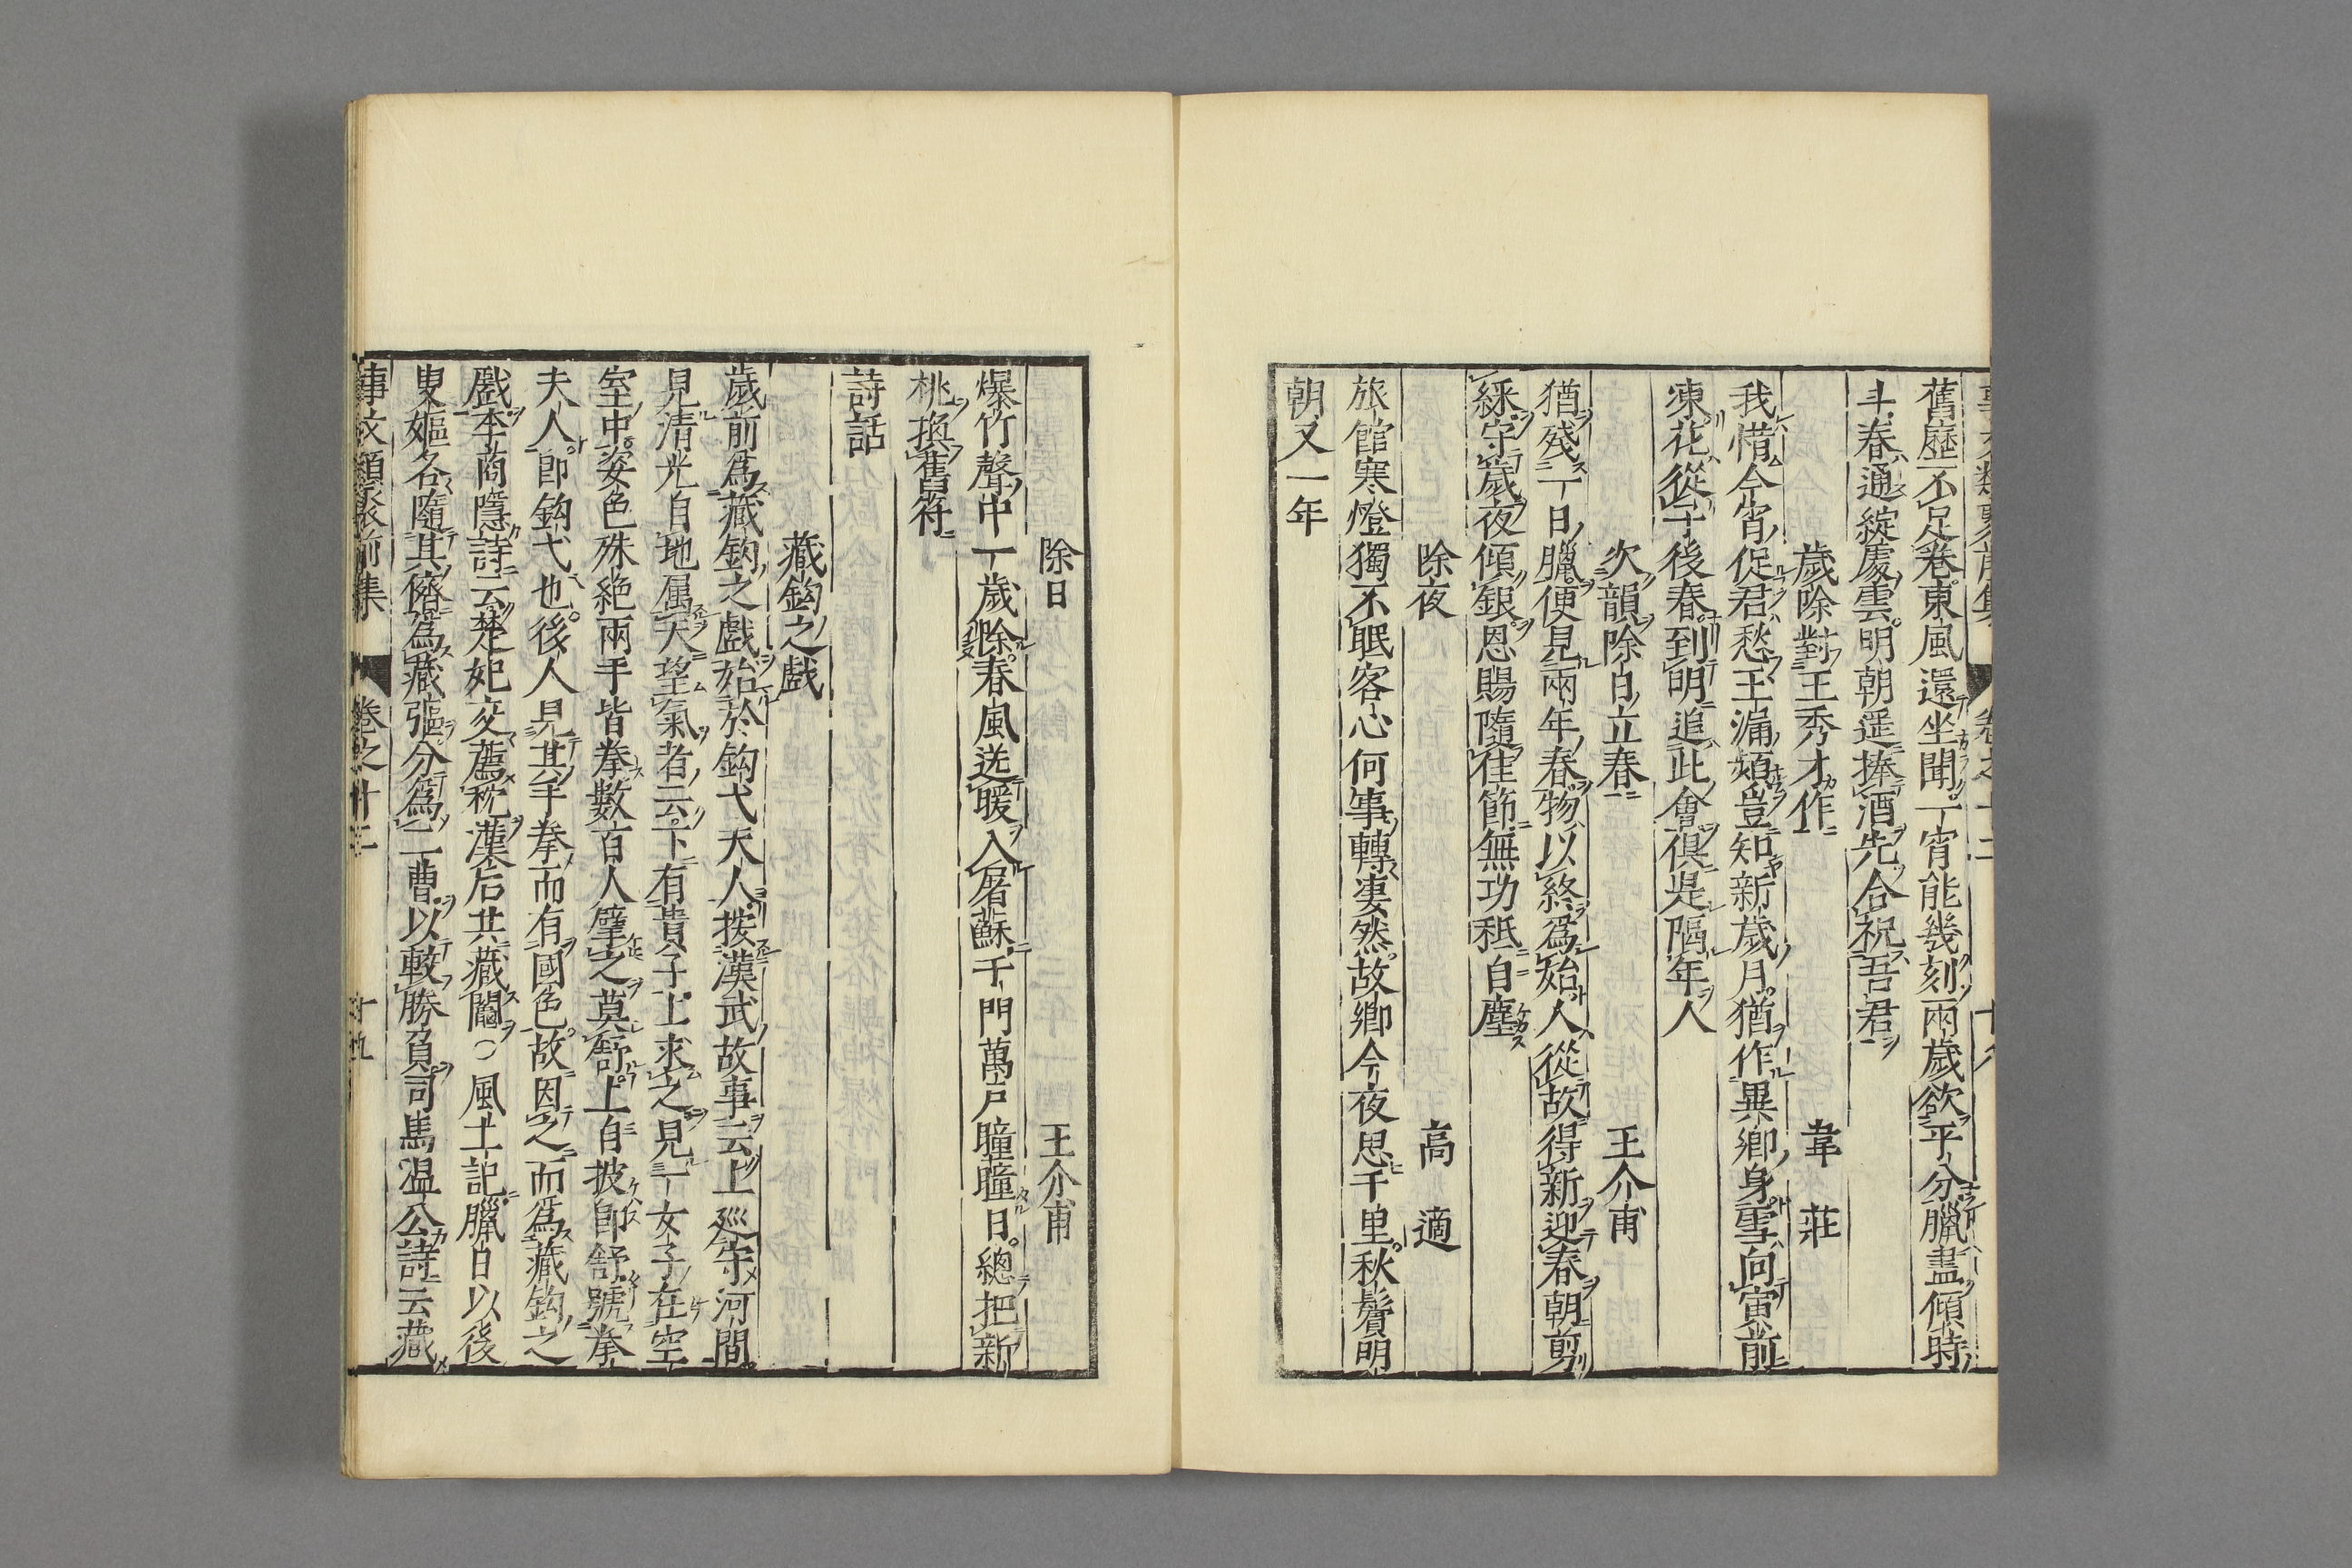 舊歷不足卷東風還坐聞一宵能幾刻兩歲欲平分臘盡傾時
斗春通綻處雲明朝遥捧酒先合祝吾君
歲除對王秀才作 韋莊
我惜今宵促君愁玉漏頻豈知新歲月猶作異鄉身雪向寅前
凍花從子後春到明追此會俱是隔年人
次韻除日立春 王介甫
猶殘一日臘便見兩年春物以終爲始人從故得新迎春朝剪
綵守歲夜傾銀恩賜隨佳節無功秪自塵
除夜 高適
旅館寒燈獨不眠客心何事轉凄然故鄉今夜思千里秋鬢明
朝又一年
除日 王介甫
爆竹聲中一歲除春風送暖入屠蘇千門萬戸曈曈日總把新
桃換舊符
詩話
藏鈎之戲
歲前爲藏鈎之戲始於鈎弋夫人按漢武故事云上巡守河間
見清光自地属天望氣者云下有貴子上求之見一女子在空
室中姿色殊絶兩手皆拳數百人擘之莫舒上自披卽舒號拳
夫人卽鈎弋也後人見其手拳而有國色故因之而爲藏鈎之
戲李商隱詩云楚妃交薦枕漢后共藏鬮○風土記臘日以後
叟嫗各隨其儕爲藏彄分爲二曹以較勝負司馬温公詩云藏
事文類聚前集 卷之十二 十九